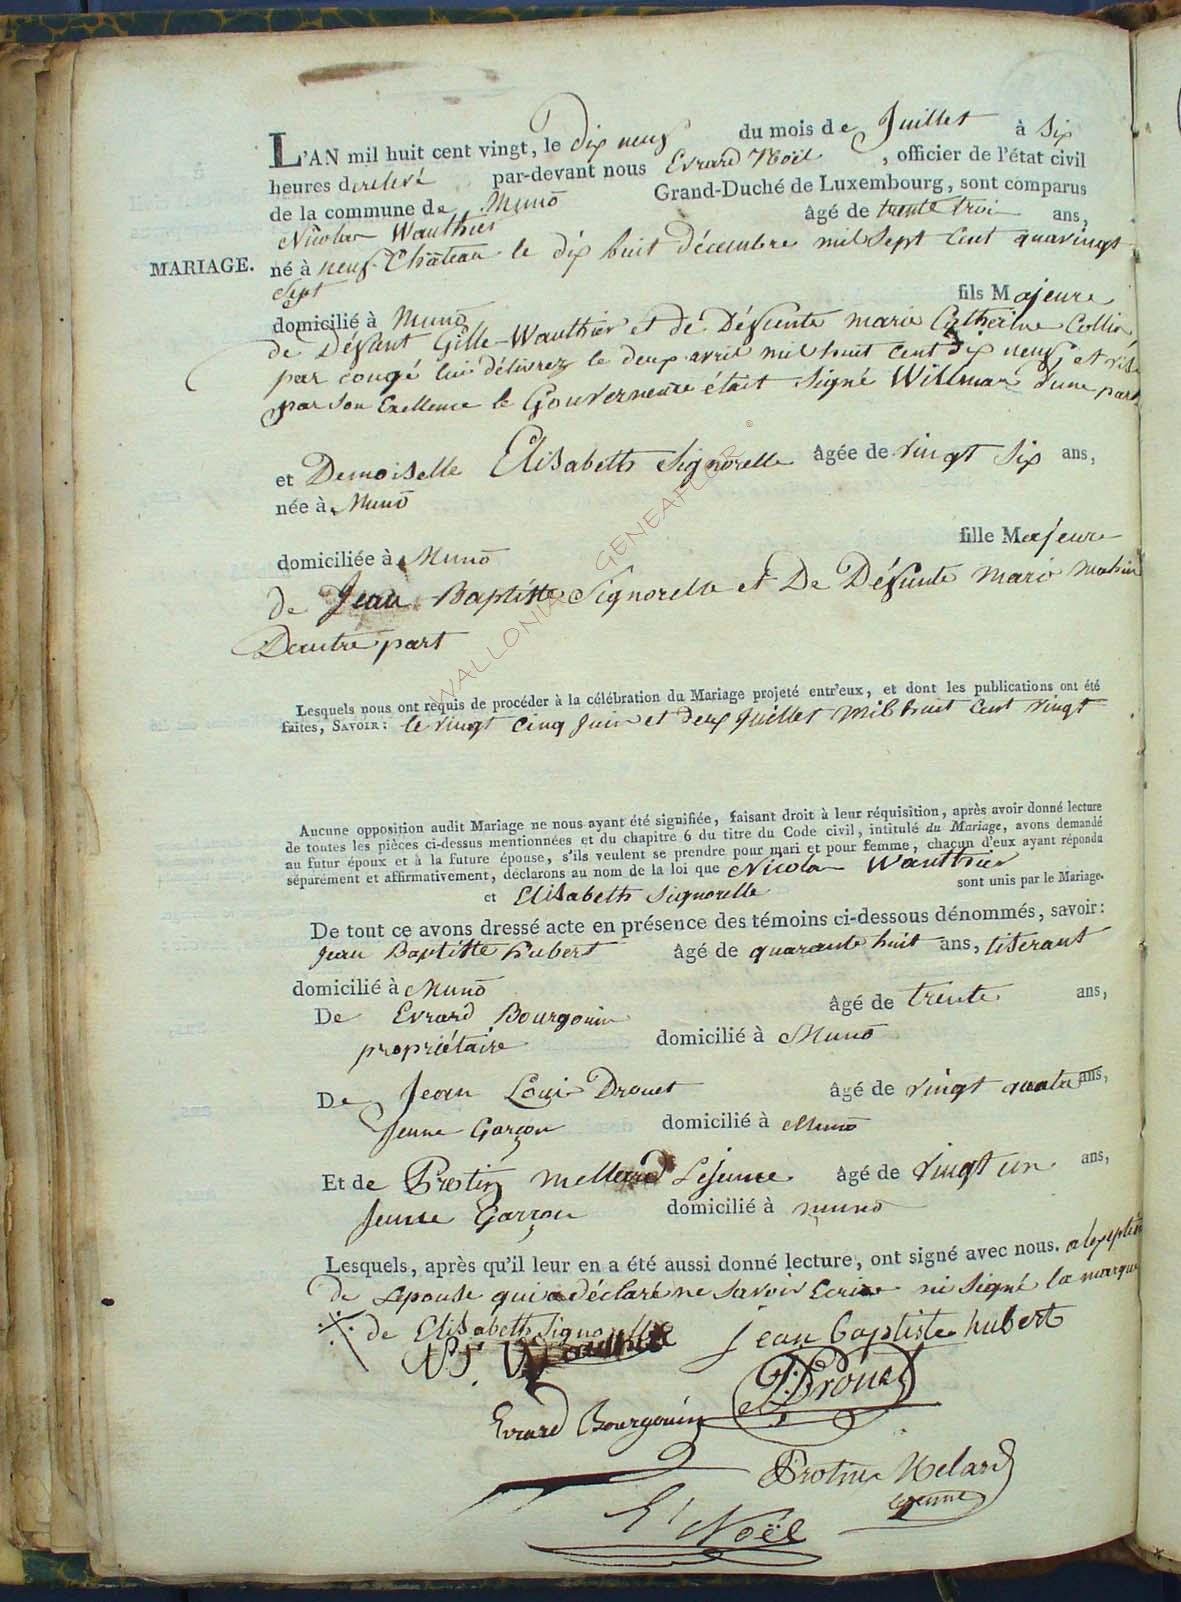 L'AN mil huit cent vingt, le dix neuf du mois de Juillet à six
heures de relevé par-devant nous Evrard Noël, officier de l'état civil
de la commune de Muno Grand-Duché de Luxembourg, sont comparus
Nicolas Wauthier âgé de trente trois ans,
MARIAGE. né à neuf-Château le dix huit décembre mil sept cent quavingt
sept
domicilié à Muno fils Majeure
de Défunt Gille Wauthier et de Défunte marie Catherine Collin
par congé lui délivrez le deux avril mil huit cent dix neuf et
par son Exellence le Gouverneure était signé Willmar d'une part
et Demoiselle Elisabeth Signorelle âgée de vingt six ans,
née à Muno
domiciliée à Muno fille Majeure
de Jean Baptiste Signorelle et De Défunte marie mahin
Dautre part
WALLONIA GENEAFLOR ©
Lesquels nous ont requis de procéder à la célébration du Mariage projeté entr'eux, et dont les publications ont été
faites, SAVOIR: le vingt cinq juin et deux Juillet mil huit cent vingt
Aucune opposition audit Mariage ne nous ayant été signifiée, faisant droit à leur réquisition, après avoir donné lecture
de toutes les pièces ci-dessus mentionnées et du chapitre 6 du titre du Code civil, intitulé du Mariage, avons demandé
au futur époux et à la future épouse, s'ils veulent se prendre pour mari et pour femme, chacun d'eux ayant répondu
séparément et affirmativement, déclarons au nom de la loi que Nicolas Wauthier
et Elisabeth Signorelle sont unis par le Mariage.
De tout ce avons dressé acte en présence des témoins ci-dessous dénommés, savoir:
Jean Baptiste hubert âgé de quarante huit ans, tiserant
domicilié à Muno
De Evrard Bourgouin âgé de trente ans,
propriétaire domicilié à Muno
De Jean Loui Drouet âgé de vingt quatre ans,
Jeune Garçon domicilié à Muno
Et de Protin Mellard Lejeune âgé de vingt un ans,
Jeune Garçon domicilié à muno
Lesquels, après qu'il leur en a été aussi donné lecture, ont signé avec nous. a lexeption
de Lepouse qui a déclaré ne savoir Ecrire ni signé la marque
de Elisabeth Signorelle
N Wauthier jean baptiste hubert
Drouet
Evrard Bourgouin
Protin Melard
Lejeune
E Noël